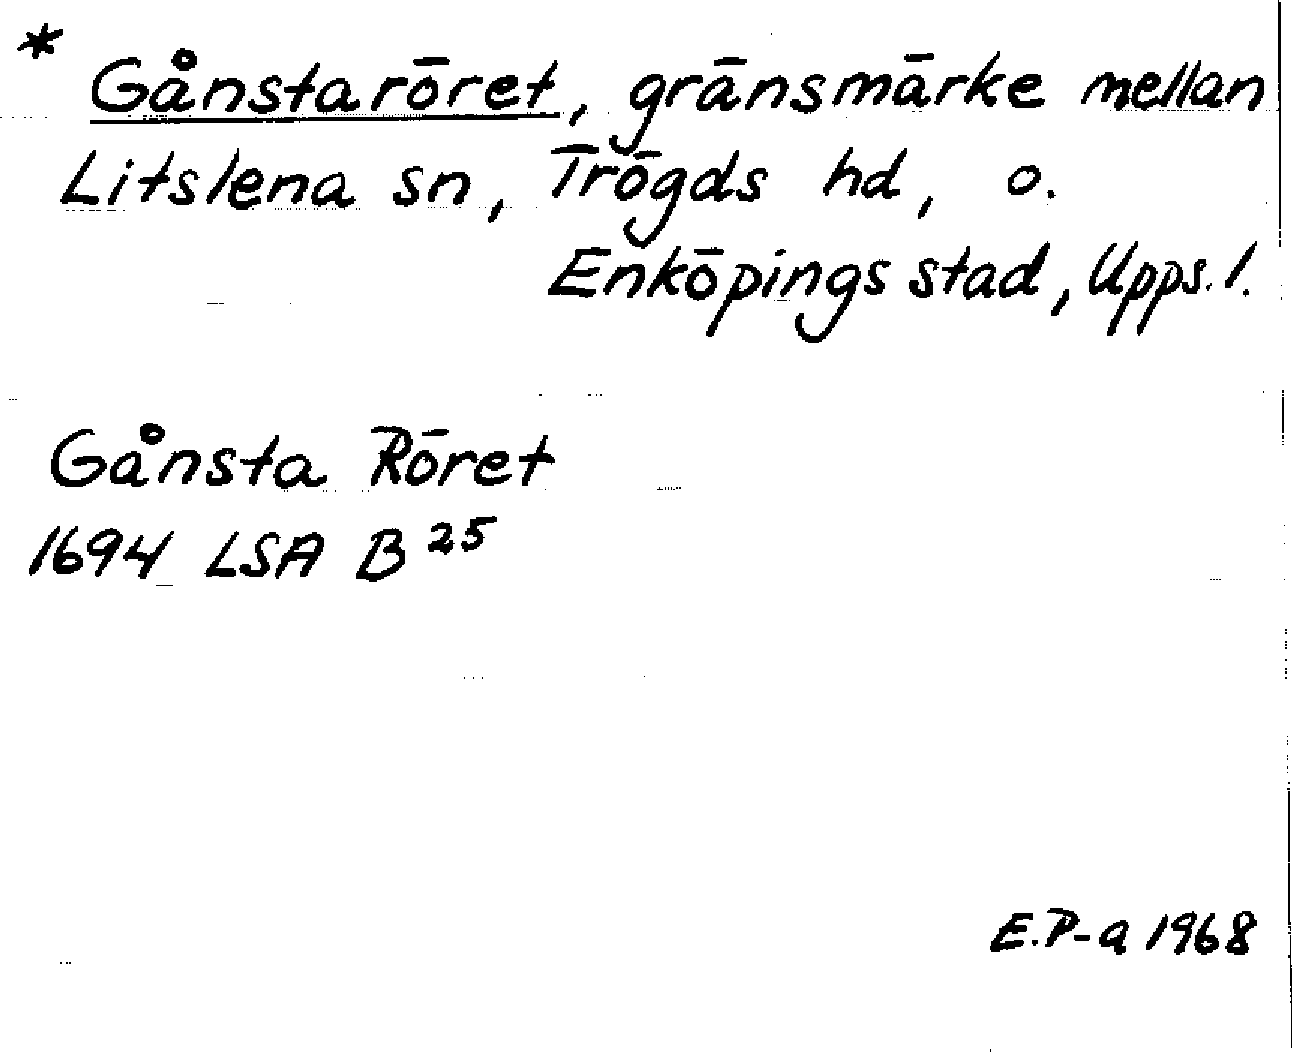 * Gånstaröret, gränsmärke mellan
Litslena sn, Trögds hd, o.
Enköpings stad, Upps. l.
Gånsta Röret
1694 LSA B 25
E.P-a 1968